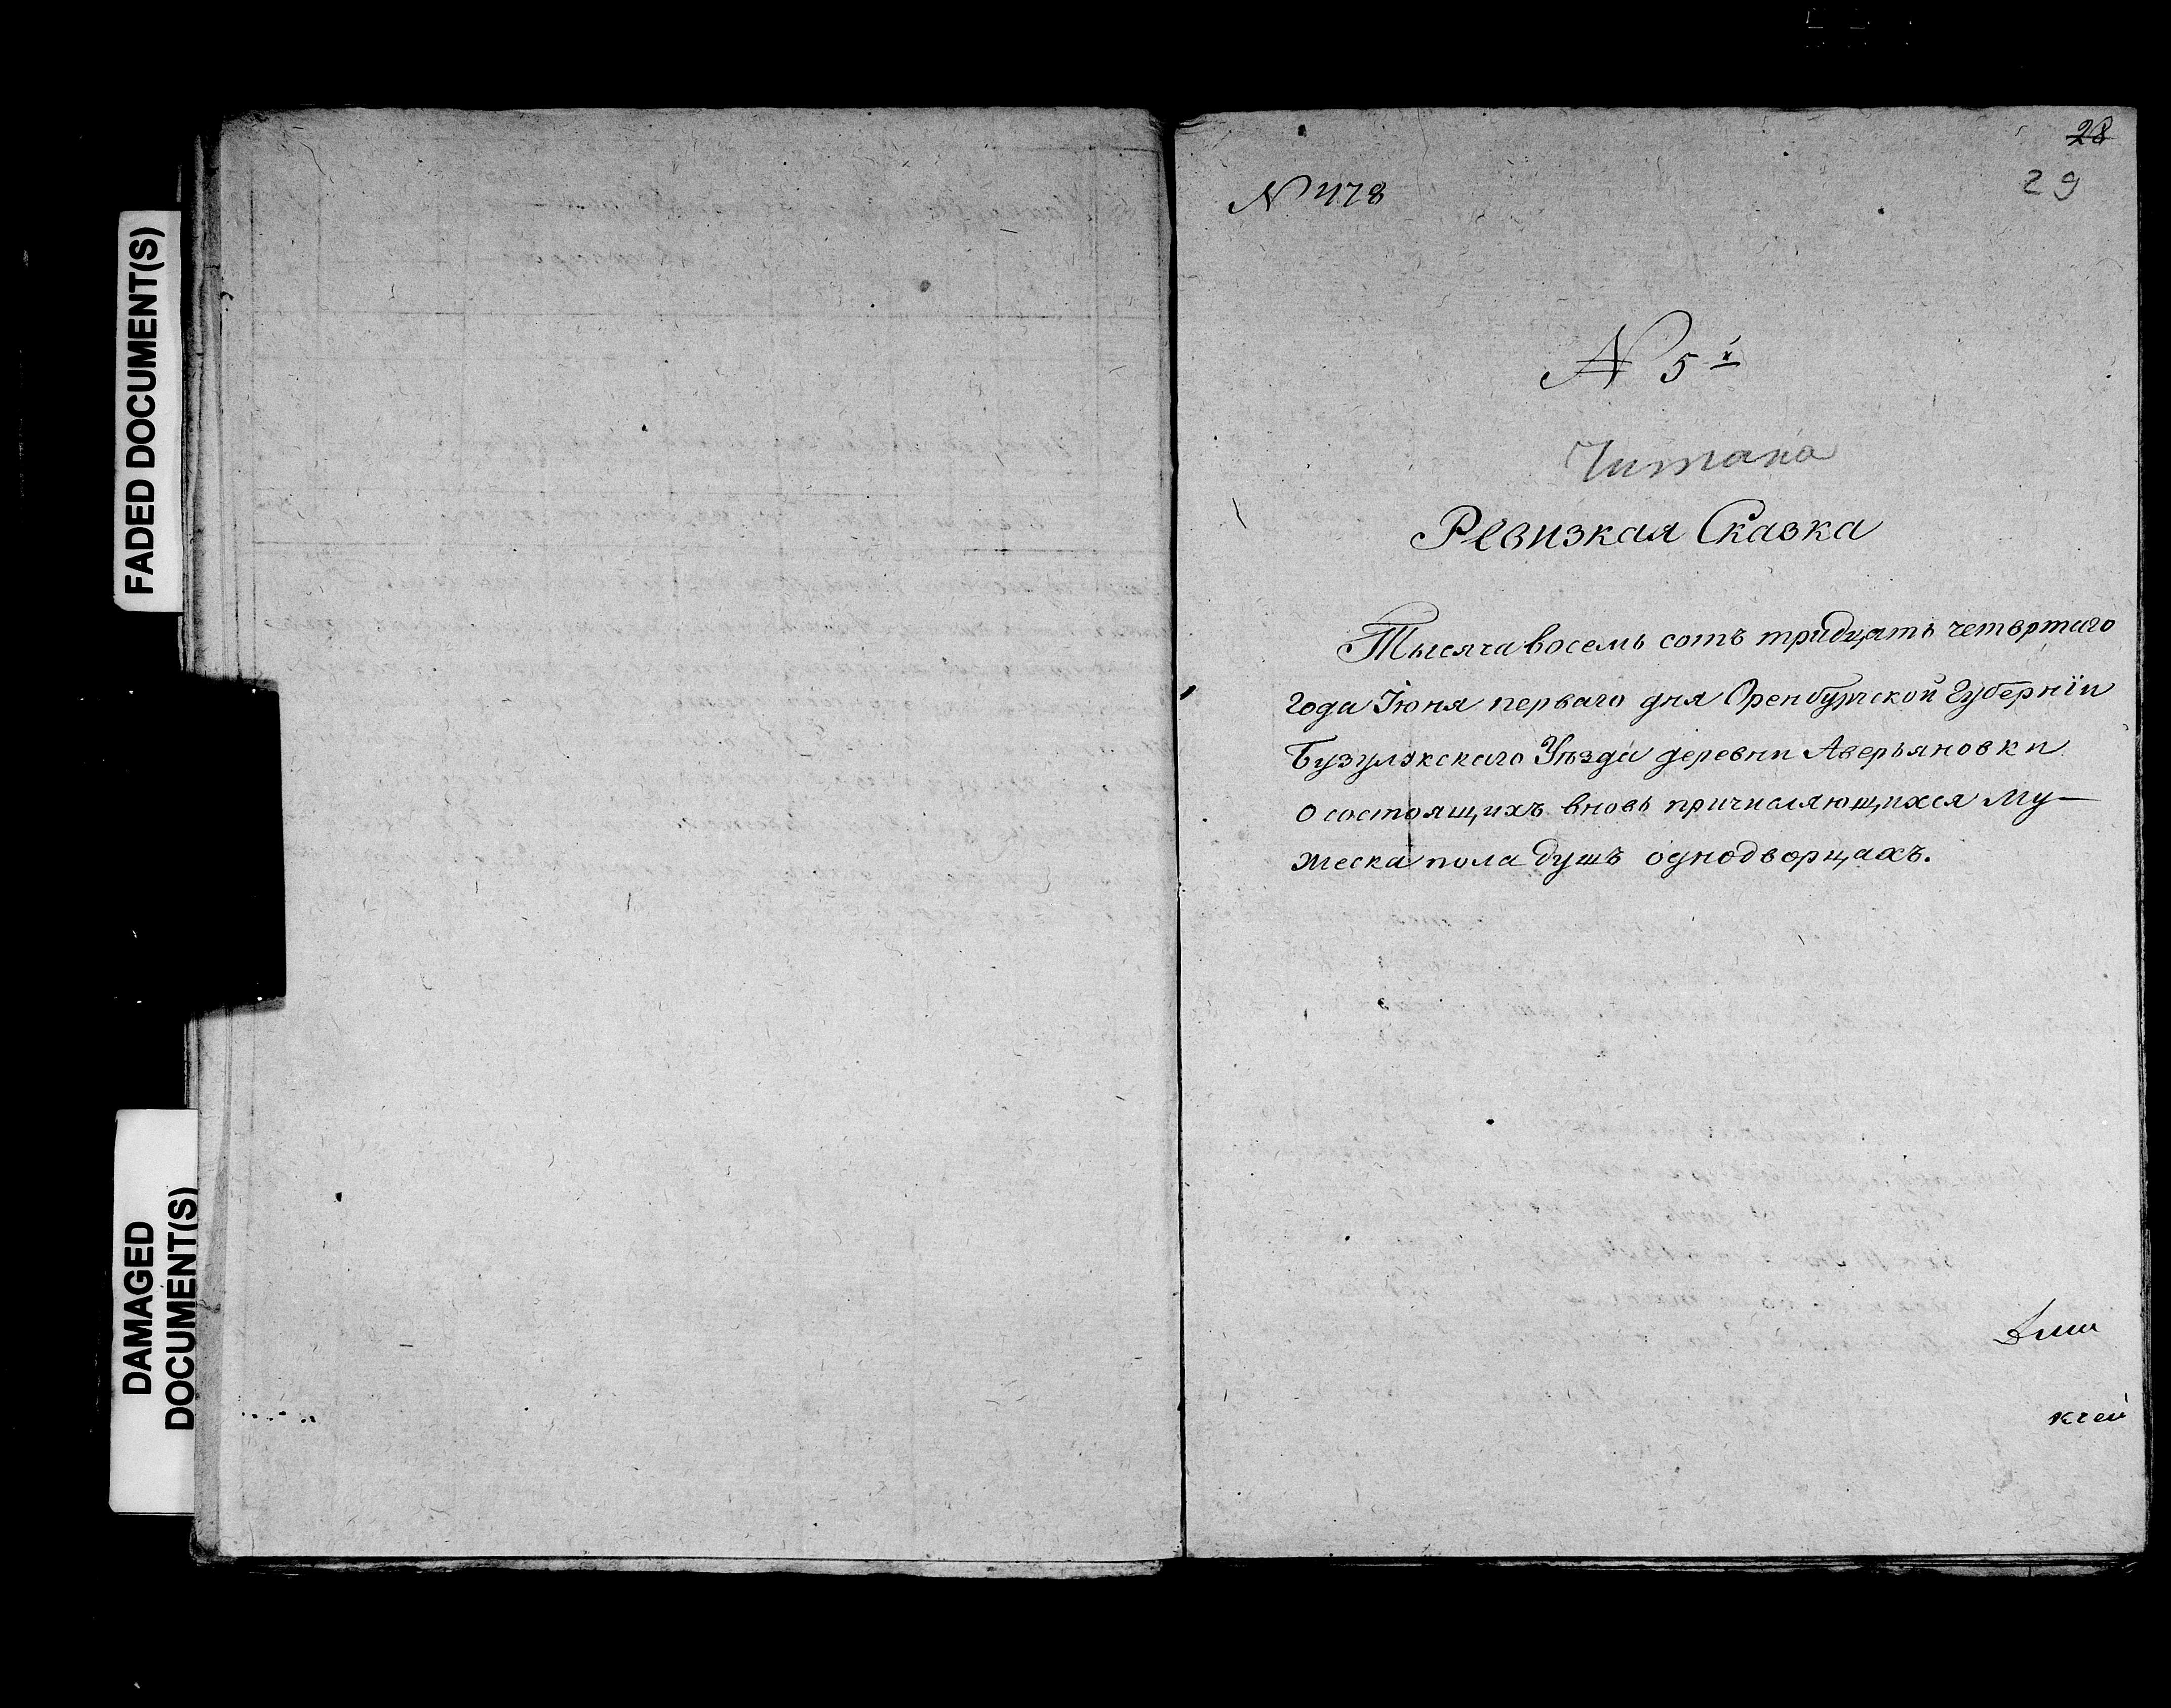 FADED DOCUMENT(S)
DAMAGED
DOCUMENT(S)
28
29
N 478
N 5й
Читана
Ревизкая Сказка
Тысяча восемь сотъ тридцать четвертаго
года Іюня перваго дня Оренбургской Губерніи
Бузулукскаго Уѣзда деревни Аверьяновки
о состоящихъ вновь причисляющихся му-
жеска пола душъ однодворцахъ.